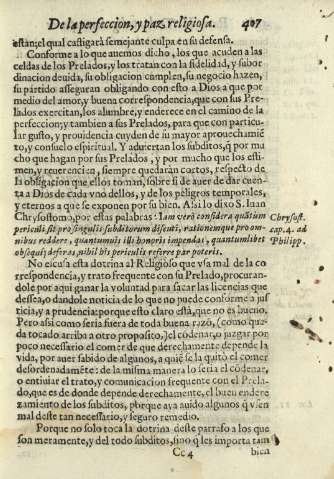 De la perfeccion, y paz religiosa. 407
están; el qual castigará semejante culpa en su defensa.
Conforme a lo que auemos dicho, los que acuden a las
celdas de los Prelados, y los tratan con la fidelidad, y subor
dinacion deuida, su obligacion cumplen, su negocio hazen,
su partido asseguran obligando con esto a Dios a que por
medio del amor, y buena correspondencia, que con sus Pre-
lados exercitan, los alumbre, y enderece en el camino de la
perfeccion; y tambien a sus Prelados, para que con particu-
lar gusto, y prouidencia cuyden de su mayor aprouechamiē
to, y consuelo espiritual. Y aduiertan los subditos, q̃ por mu
cho que hagan por sus Prelados, y por mucho que los esti-
men, y reuerencien, siempre quedarán cortos, respecto de
la obligacion que ellos toman, sobre si de auer de dar cuen
ta a Dios de cada vno dellos, y de los peligros temporales,
y eternos a que se exponen por su bien. Assi lo dixo S. Iuan
Chrysostomo, por estas palabras: Iam verò considera quātum
periculi sit pro singulis subditorum discuti, rationemque pro om-
nibus reddere, quantumuis illi honoris impendas, quantumlibet
obsequij deferas, nihil his periculis referre par poteris.
Chrysost.
cap. 4. ad
Philipp.
No escusa esta doctrina al Religioso que vsa mal de la co
rrespondencia, y trato frequente con su Prelado, procuran-
dole por aqui ganar la voluntad para sacar las licencias que
dessea, o dandole noticia de lo que no puede conforme a jus
ticia, y a prudencia: porque esto claro està, que no es bueno.
Pero assi como seria fuera de toda buena razō, (como que
da tocado arriba a otro proposito,) el cōdenar, o juzgar por
poco necessario el comer de que derechamente depende la
vida, por auer sabido de algunos, a quiē se la quitò el comer
desordenadamēte: de la misma manera lo seria el cōdenar,
o entiuiar el trato, y comunicacion frequente con el Prela-
do, que es de donde depende derechamente, el buen endere
zamiento de los subditos, porque aya auido algunos q̃ vsen
mal deste tan necessario, y seguro remedio.
Porque no solo toca la doctrina deste parrafo a los que
son meramente, y del todo subditos, sino q̃ les importa tam
Cc 4 bien